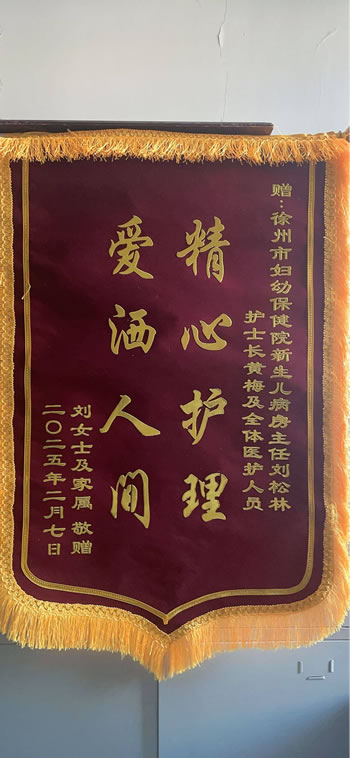 赠：徐州市妇幼保健院新生儿病房主任刘松林
护士长黄梅及全体医护人员
精心护理
爱洒人间
刘女士及家属敬赠
二〇二五年二月七日